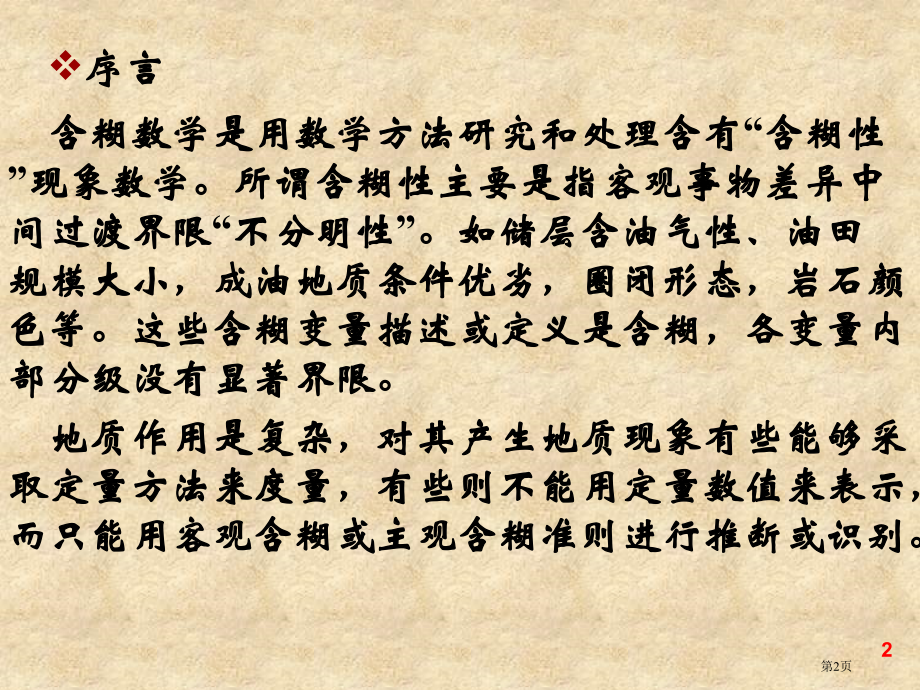 ❖序言
含糊数学是用数学方法研究和处理含有“含糊性
”现象数学。所谓含糊性主要是指客观事物差异中
间过渡界限“不分明性”。如储层含油气性、油田
规模大小，成油地质条件优劣，圈闭形态，岩石颜
色等。这些含糊变量描述或定义是含糊，各变量内
部分级没有显著界限。
地质作用是复杂，对其产生地质现象有些能够采
取定量方法来度量，有些则不能用定量数值来表示，
而只能用客观含糊或主观含糊准则进行推断或识别。
2
第2页